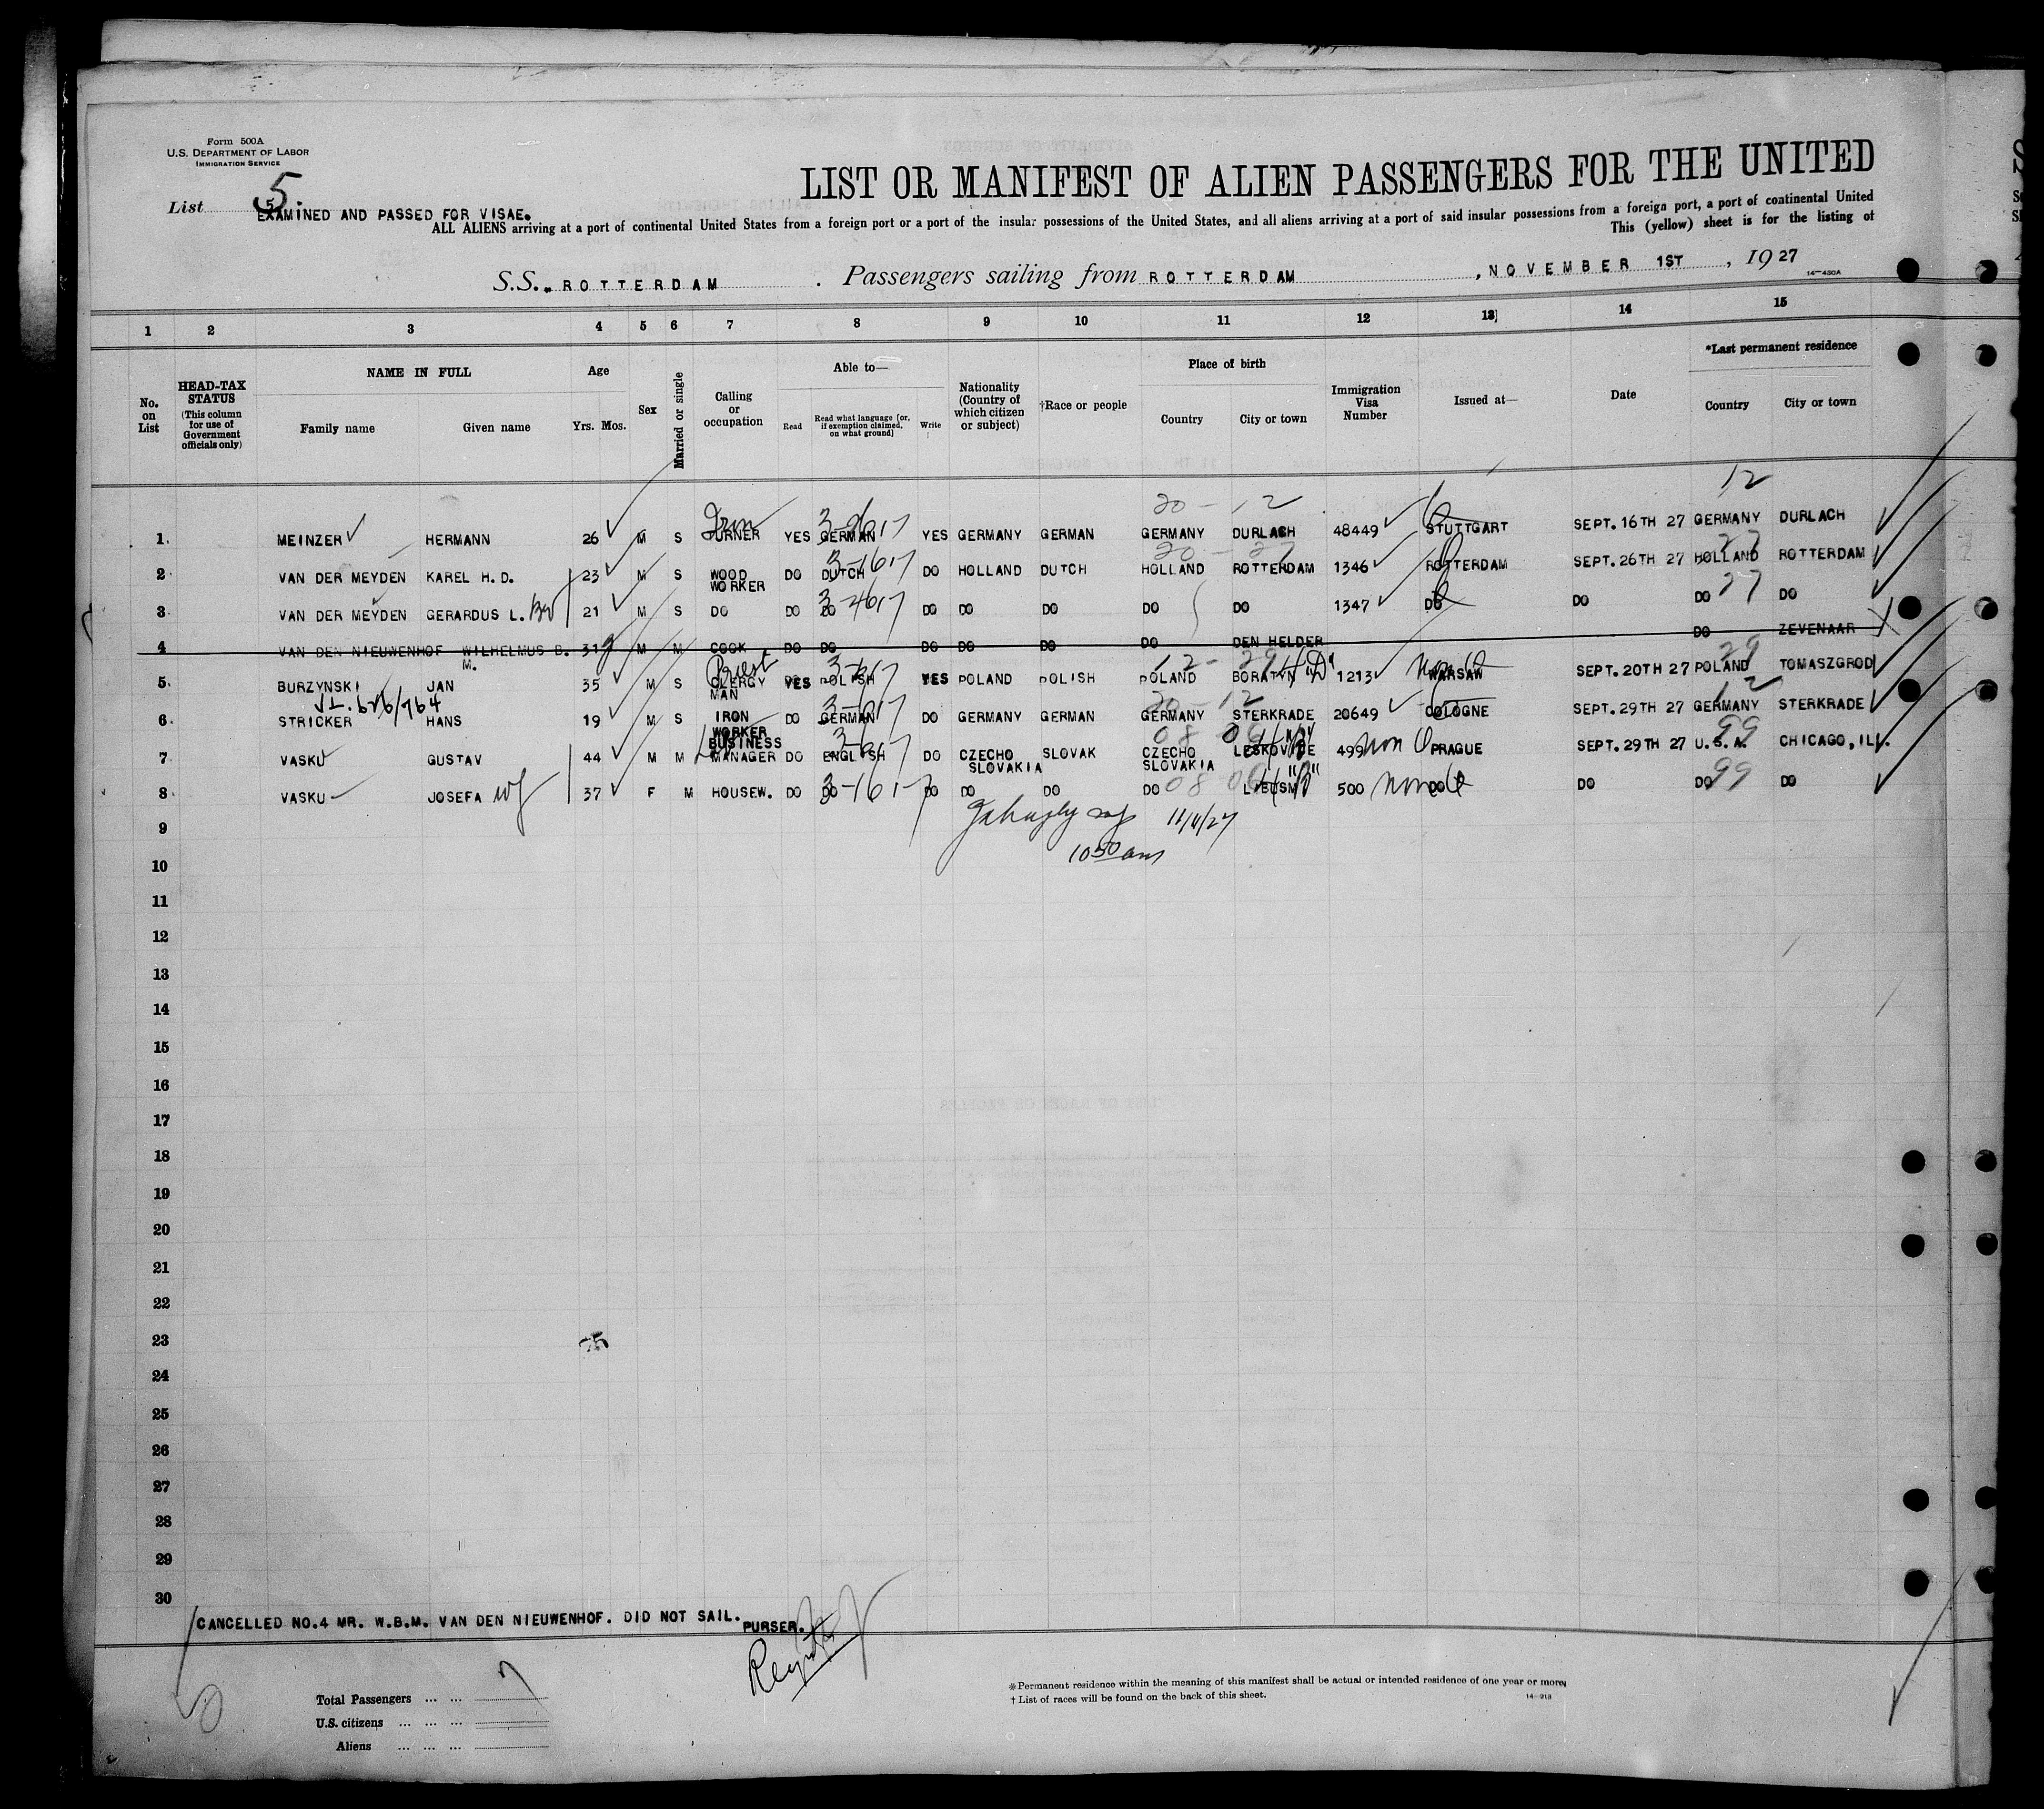 Form 500A
U.S. DEPARTMENT OF LABOR
IMMIGRATION SERVICE
List 5.
5
EXAMINED AND PASSED FOR VISAE.
LIST OR MANIFEST OF ALIEN PASSENGERS FOR THE UNITED
ALL ALIENS arriving at a port of continental United States from a foreign port or a port of the insular possessions of the United States, and all aliens arriving at a port of said insular possessions from a foreign port, a port of continental United
This (yellow) sheet is for the listing of
S.S. ROTTERDAM . Passengers sailing from ROTTERDAM , NOVEMBER 1ST , 1927
14-430A
1 2 3 4 5 6 7 8 9 10 11 12 13 14 15
No. on List
HEAD-TAX STATUS (This column for use of Government officials only)
NAME IN FULL
Family name Given name
Age
Yrs. Mos.
Sex
Married or single
Calling or occupation
Able to—
Read Read what language [or, if exemption claimed, on what ground] Write
Nationality (Country of which citizen or subject)
†Race or people
Place of birth
Country City or town
Immigration Visa Number
Issued at—
Date
*Last permanent residence
Country City or town
20 - 12 12
Iron 3-2617
1. MEINZER HERMANN 26 M S TURNER YES GERMAN YES GERMANY GERMAN GERMANY DURLACH 48449 STUTTGART SEPT.16TH 27 GERMANY DURLACH
3-1617 20 - 27 27
2 VAN DER MEYDEN KAREL H.D. 23 M S WOOD WORKER DO DUTCH DO HOLLAND DUTCH HOLLAND ROTTERDAM 1346 ROTTERDAM SEPT.26TH 27 HOLLAND ROTTERDAM
3-4617 27
3 VAN DER MEYDEN GERARDUS L. 21 M S DO DO DO DO DO DO DO DO 1347 DO DO DO DO
4 VAN DEN NIEUWENHOF WILHELMUS B. M. 31 M M COOK DO DO DO DO DO DO DEN HELDER DO ZEVENAAR
Priest 3-617 12 - 29 4 "D" Non Q 29
5. BURZYNSKI JAN 35 M S CLERGY MAN YES POLISH YES POLAND POLISH POLAND BORATYN 1213 WARSAW SEPT.20TH 27 POLAND TOMASZGROD
3-617 20 - 12 12
6. STRICKER HANS 19 M S IRON WORKER DO GERMAN DO GERMANY GERMAN GERMANY STERKRADE 20649 COLOGNE SEPT.29TH 27 GERMANY STERKRADE
3-617 08 06 4 "B" non Q 99
7 VASKU GUSTAV 44 M M BUSINESS MANAGER DO ENGLISH DO CZECHO SLOVAKIA SLOVAK CZECHO SLOVAKIA LESKOVICE 499 PRAGUE SEPT.29TH 27 U.S.A. CHICAGO, ILL.
wf 3-1617 08 06 4 "B" non Q 99
8 VASKU JOSEFA 37 F M HOUSEW. DO DO DO DO DO DO LIBUSM 500 DO DO DO DO
11/11/27
9
10 50 am
10
11
12
13
14
15
16
17
18
19
20
21
22
23
24
25
26
27
28
29
30
CANCELLED NO.4 MR. W.B.M. VAN DEN NIEUWENHOF. DID NOT SAIL. PURSER.
Total Passengers ... ... 7
U.S. citizens ... ... ...
Aliens ... ... ...
※Permanent residence within the meaning of this manifest shall be actual or intended residence of one year or more.
† List of races will be found on the back of this sheet.
14-918